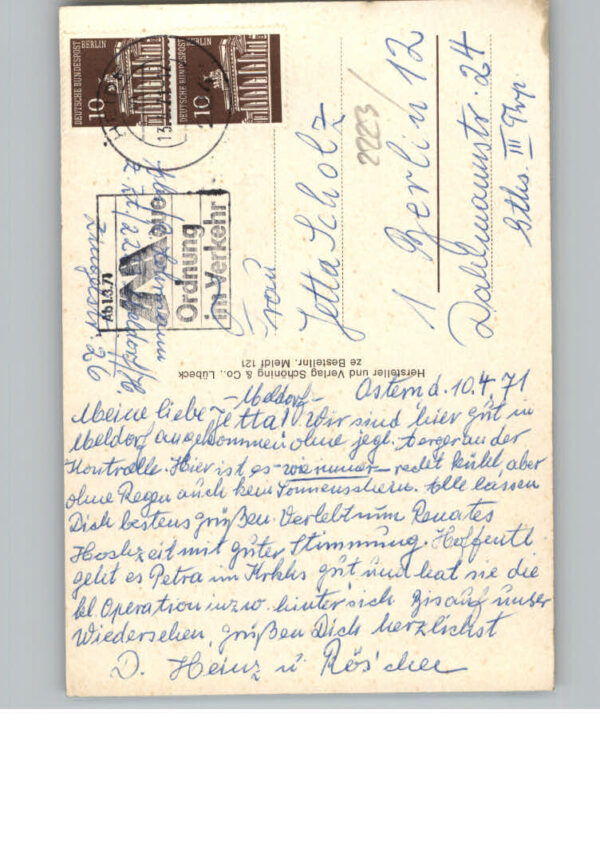 DEUTSCHE BUNDESPOST
BERLIN
10
DEUTSCHE BUNDESPOST
BERLIN
10
Ab 1.3.71
Neue
Ordnung
im Verkehr
2223
Frau
Jetta Scholz
1 Berlin 12
Dahlmannstr. 24
Gths. III Trp.
Hersteller und Verlag Schöning & Co., Lübeck
ze Bestellnr. Meldf 121
- Meldorf -
Ostern d. 10.4.71
Meine liebe Jetta! Wir sind hier gut in
Meldorf angekommen ohne jegl. Aerger an der
Kontrolle. Hier ist es - wie immer - recht kühl, aber
ohne Regen auch kein Sonnenschein. Alle lassen
Dich bestens grüßen. Verlebt nun Renates
Hochzeit mit guter Stimmung. Hoffentl.
geht es Petra im Krkhs gut und hat sie die
kl. Operation inzw. hinter sich. Bis auf unser
Wiedersehen, grüßen Dich herzlichst
D. Heinz u. Rös'chen